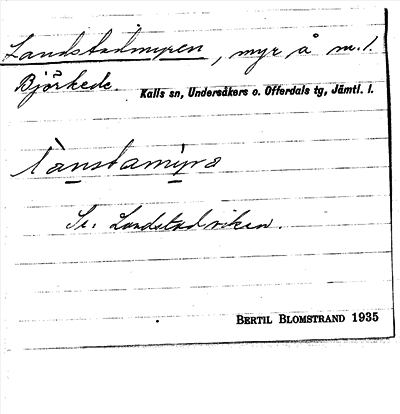 Landstadmyren, myr å m. l.
Björkede. Kalls sn, Undersåkers o. Offerdals tg, Jämtl. l.
lànstamỳra
Se: Landstadviken.
BERTIL BLOMSTRAND 1935